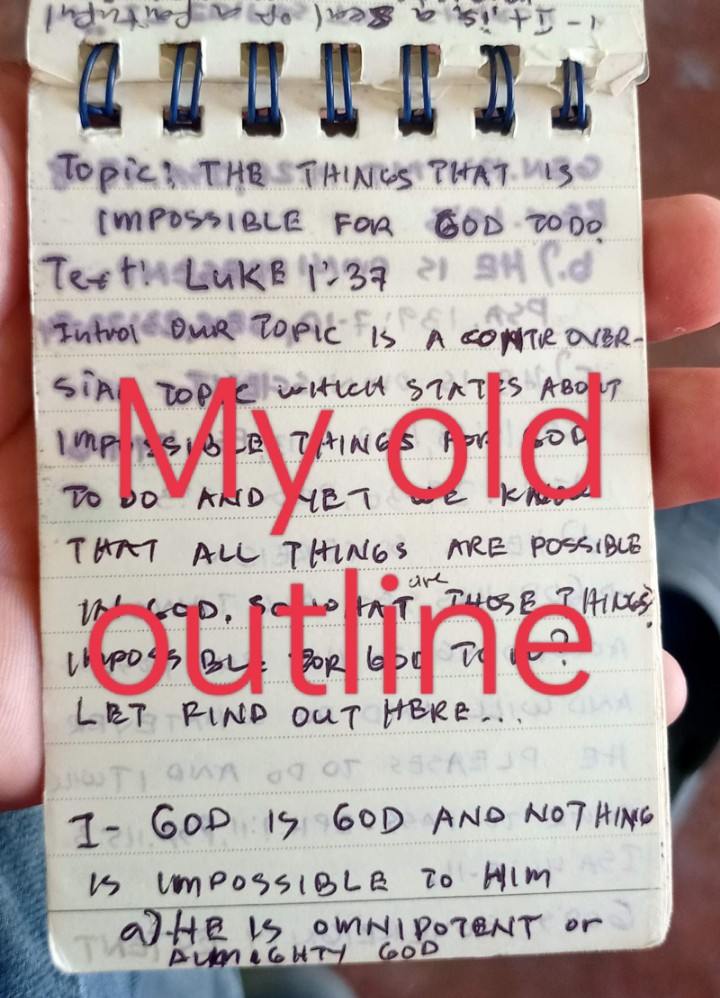 Topic: THE THINGS THAT IS
IMPOSSIBLE FOR GOD TO DO.
Text: LUKE 1:37
Intro: OUR TOPIC IS A CONTROVER-
SIAL TOPIC WHICH STATES ABOUT
IMPOSSIBLE THINGS FOR GOD
TO DO AND YET WE KNOW
THAT ALL THINGS ARE POSSIBLE
GOD. SO WHAT are THOSE THINGS
IMPOSSIBLE FOR GOD TO DO?
LET FIND OUT HERE...
I- GOD IS GOD AND NOTHING
IS IMPOSSIBLE TO HIM
a) HE IS OMNIPOTENT or
ALMIGHTY GOD
My old
outline